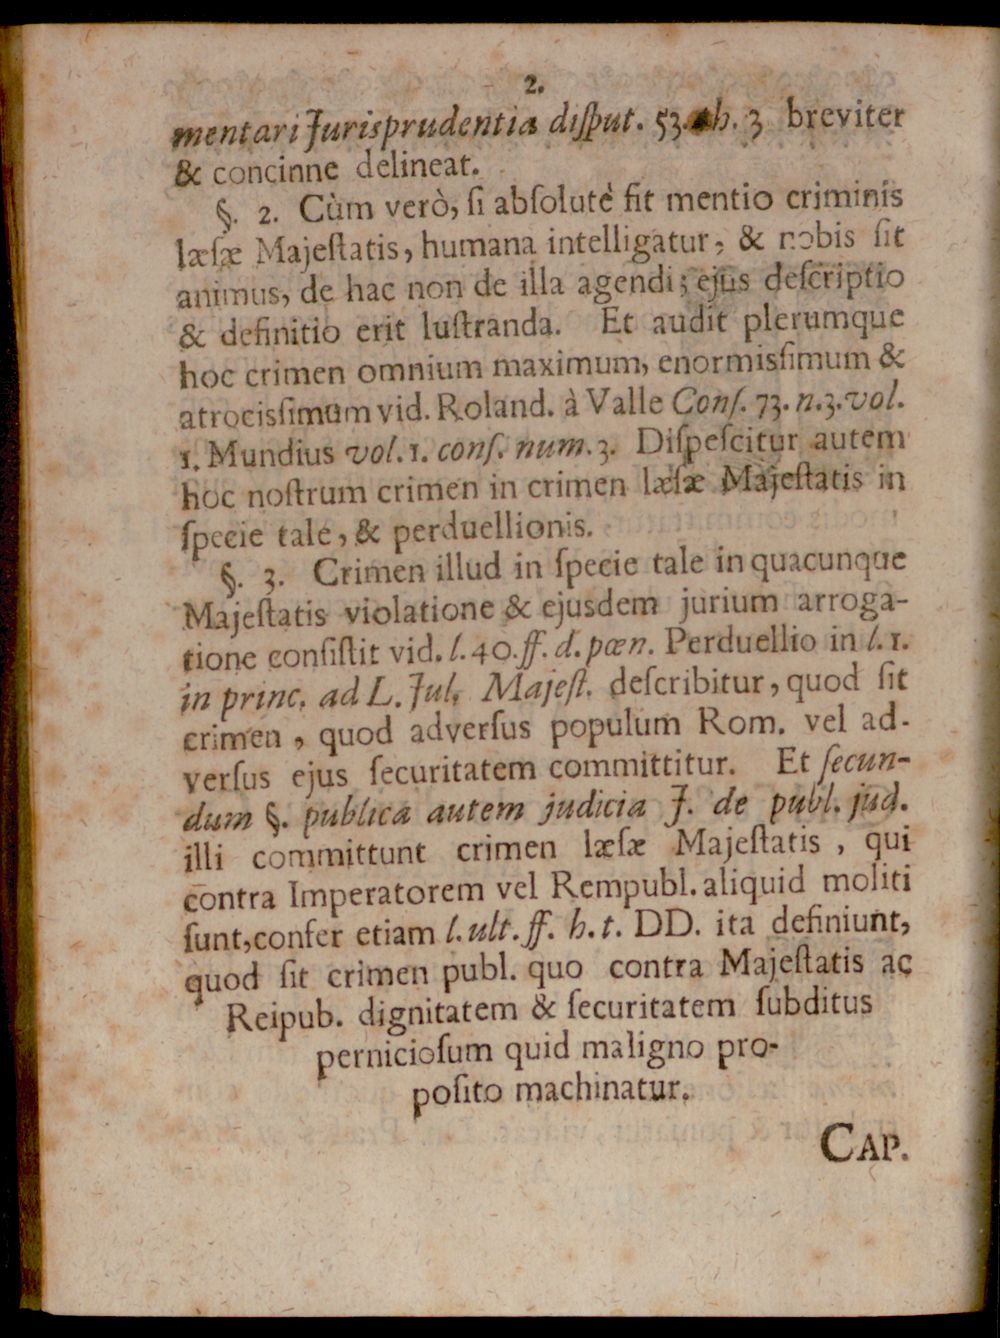 2.
mentari Jurisprudentia disput. 53. th. 3 breviter
& concinne delineat.
§. 2. Cùm verò, ſi abſolutè fit mentio criminis
læſæ Majeſtatis, humana intelligatur, & nobis ſit
animus, de hac non de illa agendi; ejus deſcriptio
& definitio erit luſtranda. Et audit plerumque
hoc crimen omnium maximum, enormisſimum &
atrocisſimum vid. Roland. à Valle Conſ. 73. n. 3. vol.
1. Mundius vol. 1. conſ. num. 3. Diſpeſcitur autem
hoc noſtrum crimen in crimen læſæ Majeſtatis in
ſpecie tale, & perduellionis.
§. 3. Crimen illud in ſpecie tale in quacunque
Majeſtatis violatione & ejusdem jurium arroga-
tione conſiſtit vid. l. 40. ff. d. pœn. Perduellio in l. 1.
in princ. ad L. Jul. Majeſt. deſcribitur, quod ſit
crimen, quod adverſus populum Rom. vel ad-
verſus ejus ſecuritatem committitur. Et ſecun-
dum §. publica autem judicia J. de publ. jud.
illi committunt crimen læſæ Majeſtatis, qui
contra Imperatorem vel Rempubl. aliquid moliti
ſunt, confer etiam l. ult. ff. h. t. DD. ita definiunt,
quod ſit crimen publ. quo contra Majeſtatis ac
Reipub. dignitatem & ſecuritatem ſubditus
pernicioſum quid maligno pro-
poſito machinatur.
CAP.